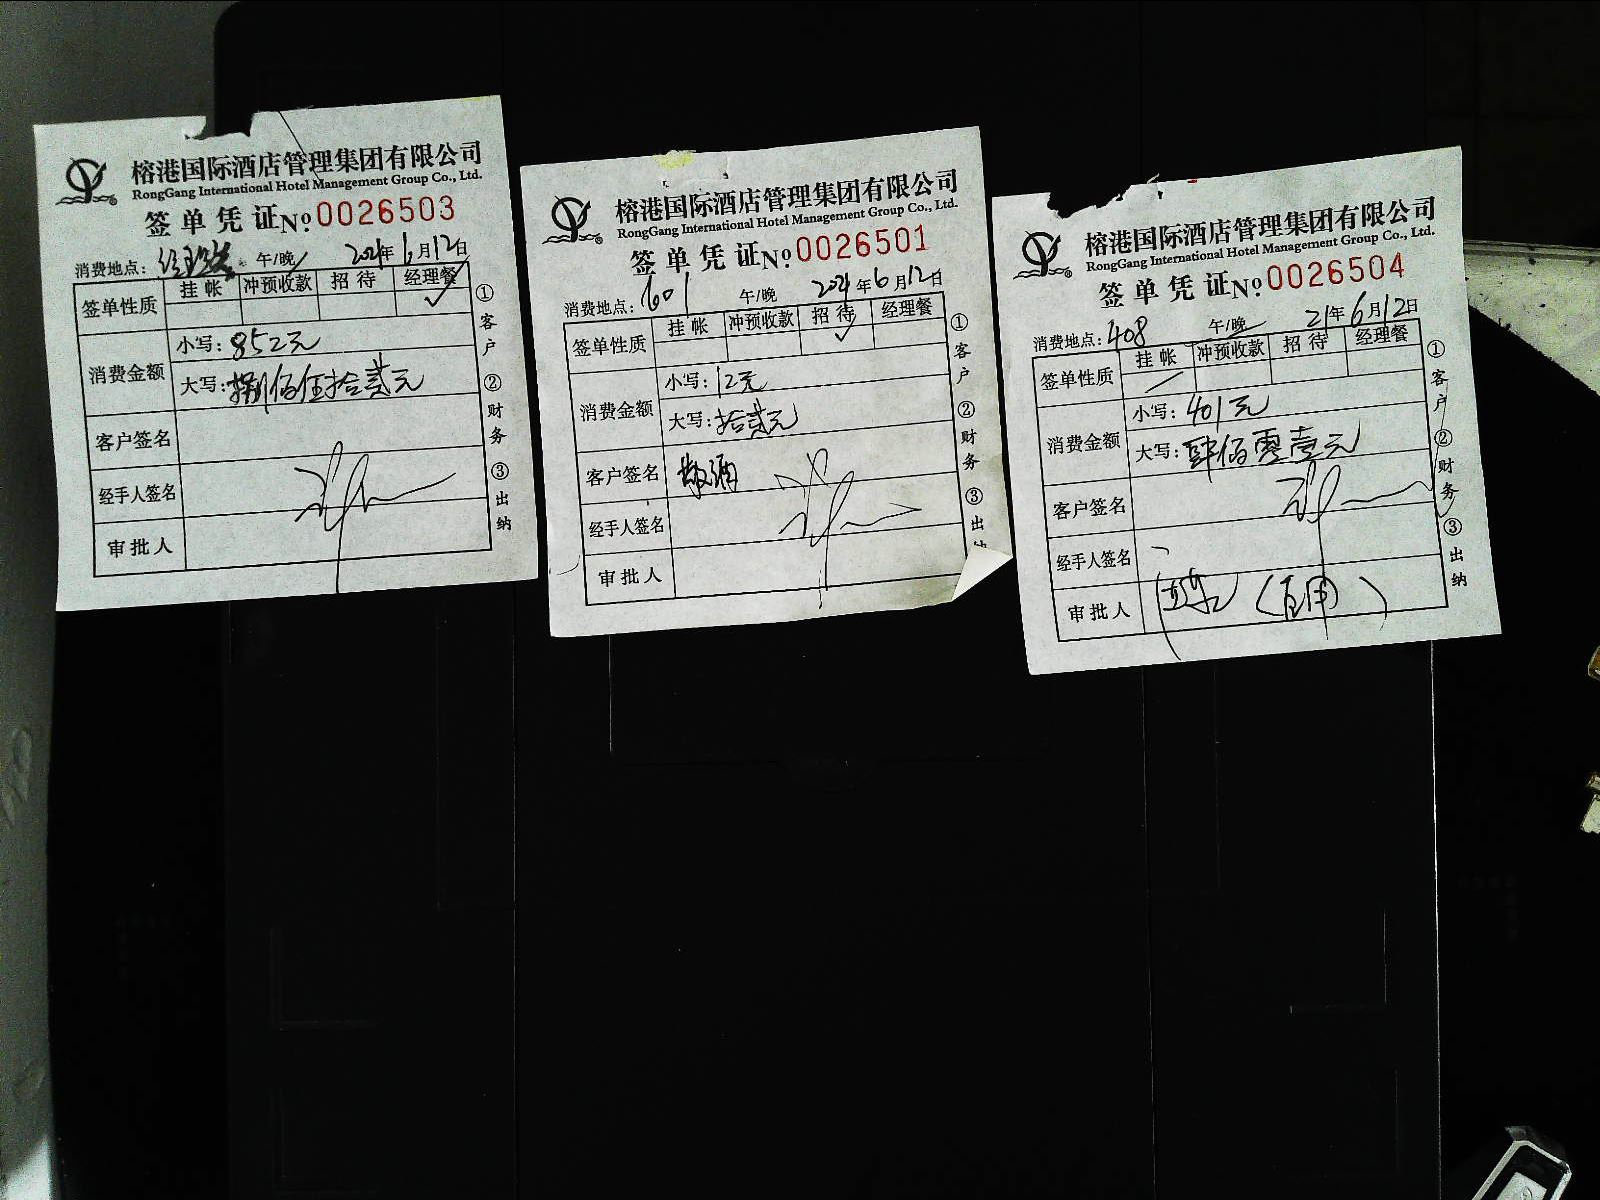 榕港国际酒店管理集团有限公司
RongGang International Hotel Management Group Co., Ltd.
签单凭证 No. 0026503
消费地点: 午/晚 2021年6月12日
签单性质 挂帐 冲预收款 招待 经理餐 ✓
消费金额
小写: 852元
大写: 捌佰伍拾贰元
客户签名
经手人签名
审批人
①客户 ②财务 ③出纳
榕港国际酒店管理集团有限公司
RongGang International Hotel Management Group Co., Ltd.
签单凭证 No. 0026501
消费地点: 601 午/晚 2021年6月12日
签单性质 挂帐 冲预收款 招待 ✓ 经理餐
消费金额
小写: 12元
大写: 拾贰元
客户签名 敬酒
经手人签名
审批人
①客户 ②财务 ③出纳
榕港国际酒店管理集团有限公司
RongGang International Hotel Management Group Co., Ltd.
签单凭证 No. 0026504
消费地点: 408 午/晚 21年6月12日
签单性质 挂帐 冲预收款 招待 经理餐
消费金额
小写: 401元
大写: 肆佰零壹元
客户签名
经手人签名
审批人
①客户 ②财务 ③出纳